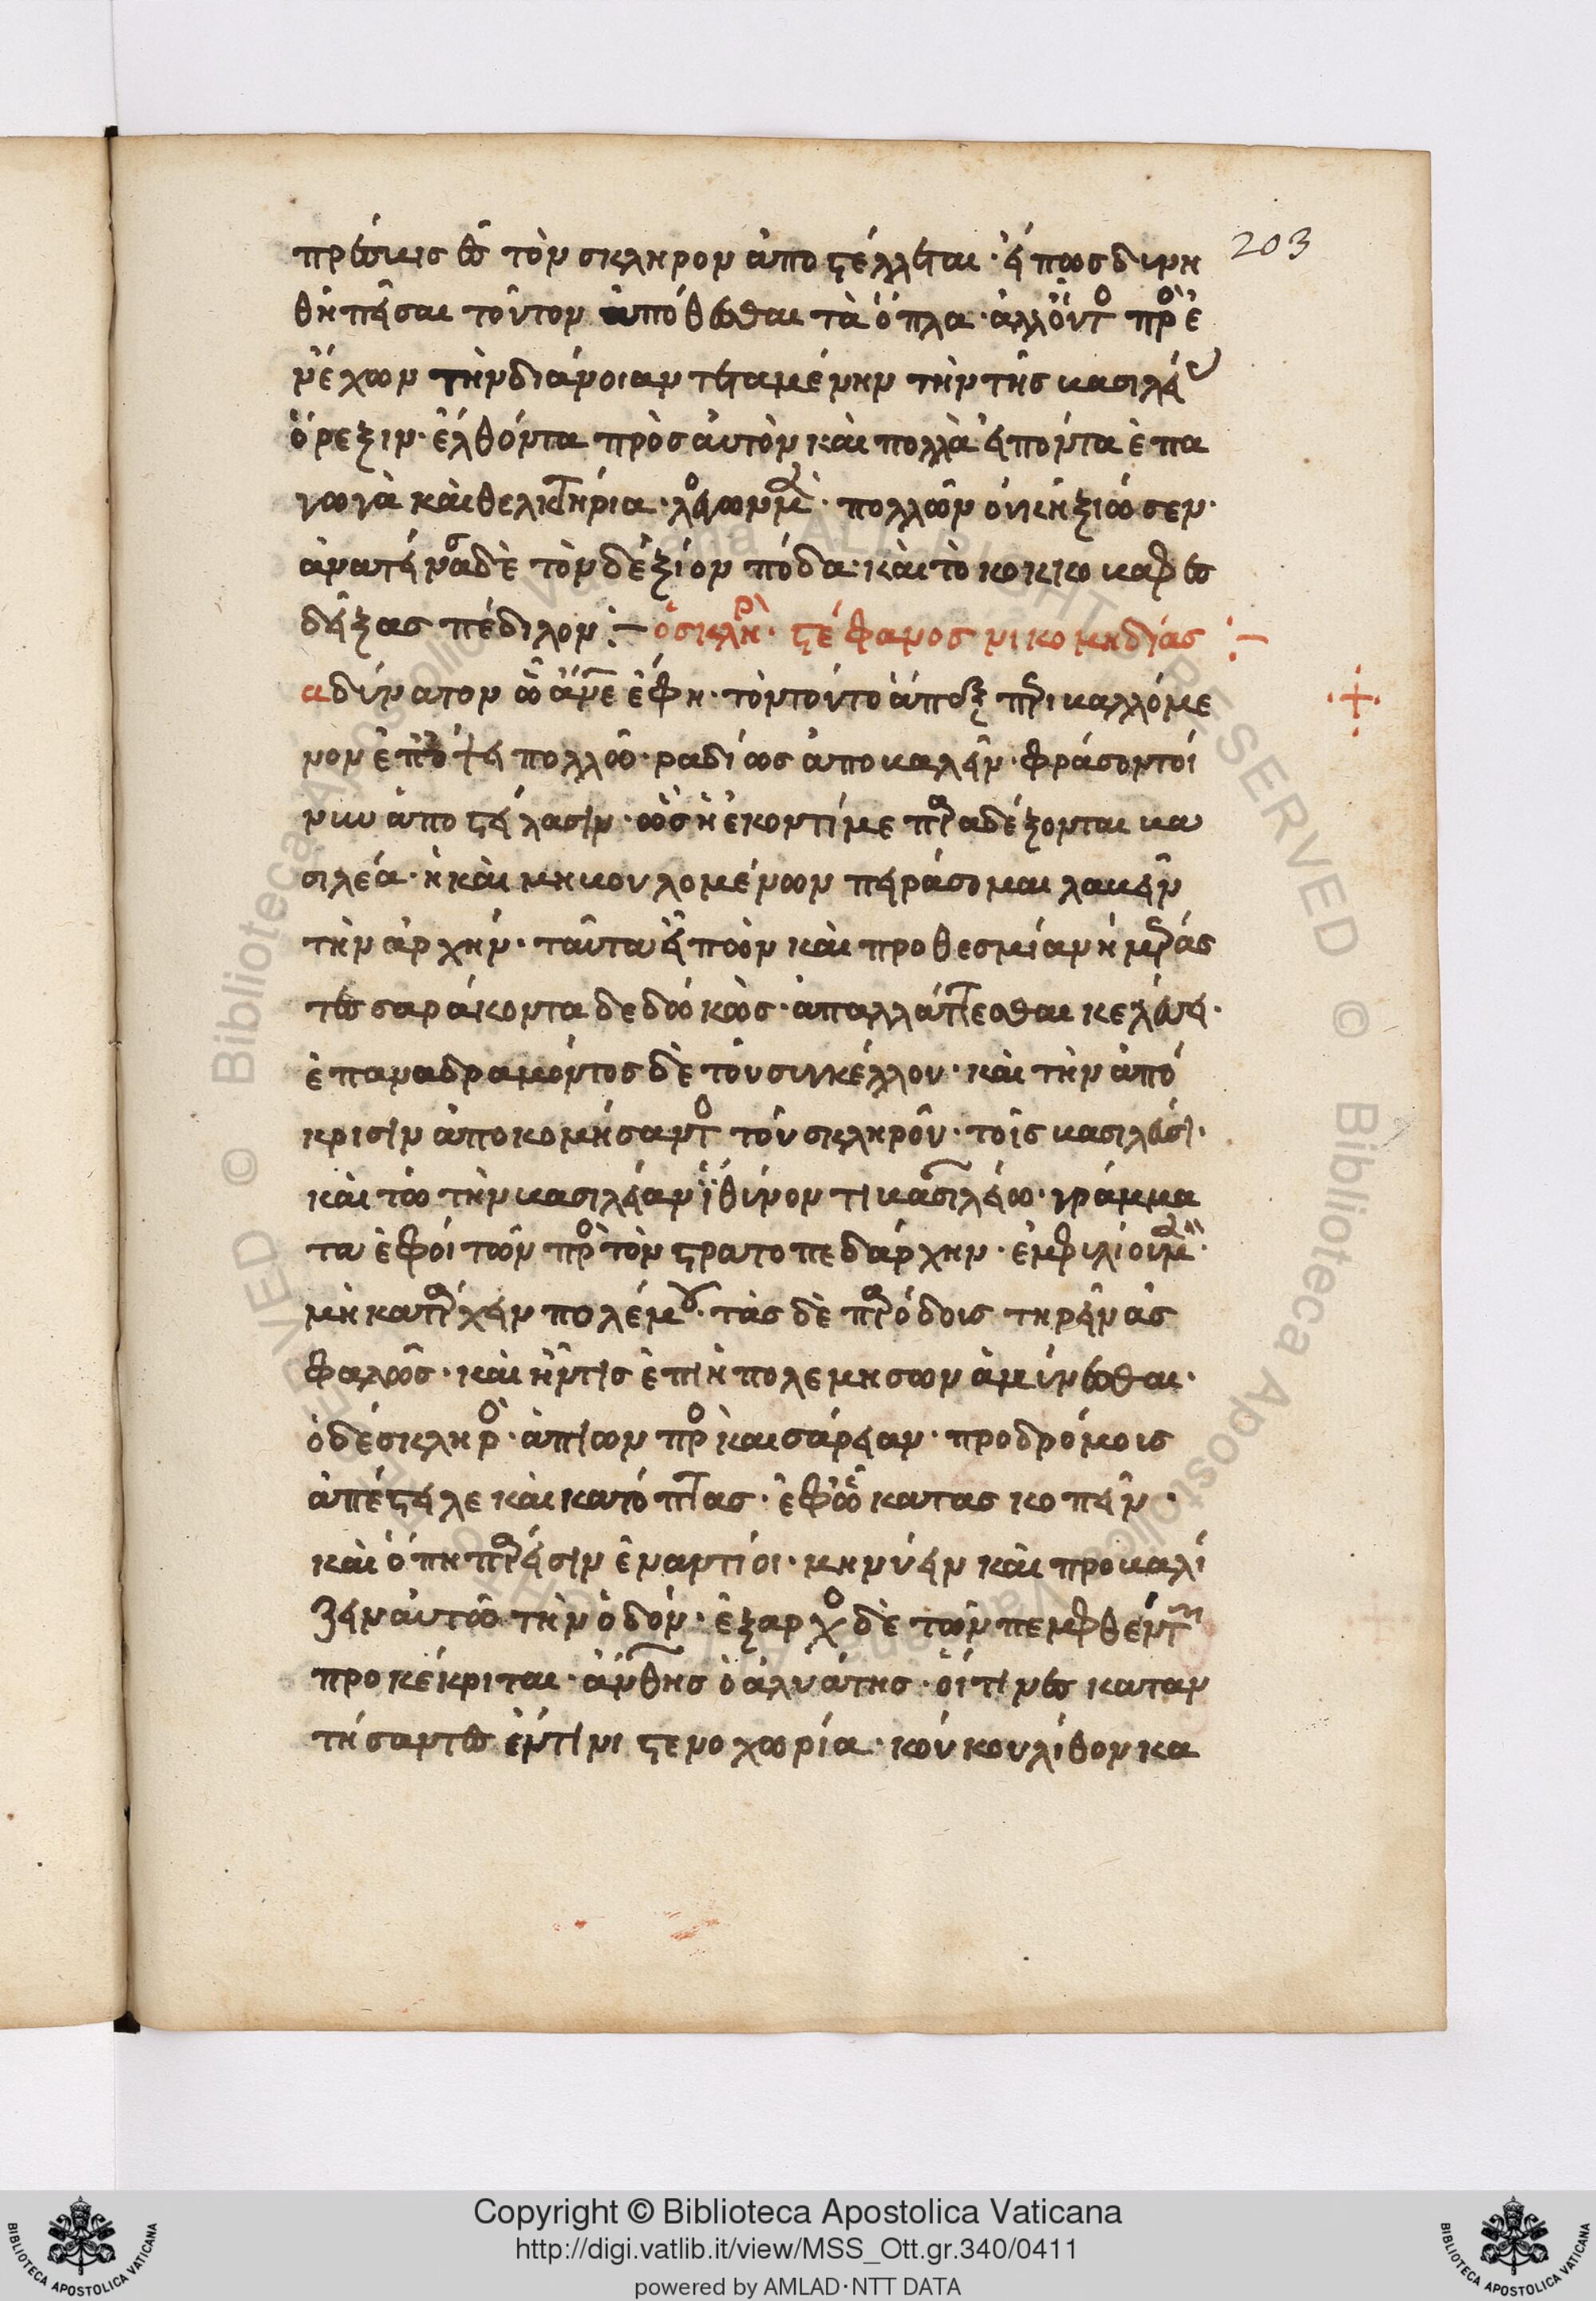 πρέσβυς ἐς τὸν σκληρον ἀποστέλλεται · εἴπως δυνη
θῆ πεῖσαι τοῦτον ἀπόθεσθαι τὰ ὅπλα · ἀλλ' οὗτος πρὸς ἕ
ν ἔχων τὴν διάνοιαν τεταμένην τὴν τῆς βασιλείας
ὄρεξιν · ἐλθόντα πρὸς αὐτὸν καὶ πολλὰ εἰπόντα ἐπα
γωγὰ καὶ θελκτήρια · λόγων μὲν · πολλῶν οὐκ ἠξίωσεν ·
ἀνατείνας δὲ τὸν δεξιὸν πόδα · καὶ τὸ κοκκοβαφὲς
δείξας πέδιλον :— ὁ σκληρὸς · στέφανος νικομηδίας :—
αδύνατον ὦ ἄνθρωπε ἔφη · τὸν τοῦτο ἅπαξ περιβαλλόμε
νον ἐπὶ πολλῶ · ραδίως ἀποβαλεῖν · φράσον τοί
νυν ἀποστείλασιν · ὡς ἢ ἑκοντί με παραδέξονται βα
σιλέα · ἢ καὶ μὴ βουλομένων πειράσομαι λαβεῖν
τὴν ἀρχήν · ταῦτα εἰπὼν καὶ προθεσμίαν ἡμέρας
τεσσαράκοντα δεδωκὼς · ἀπαλλάττεσθαι κελεύει ·
ἐπαναδραμόντος δὲ τοῦ συγκέλλου · καὶ τὴν ἀπό
κρισιν ἀποκομήσαντος τοῦ σκληροῦ · τοῖς βασιλεύσι ·
καὶ τῶ τὴν βασιλείαν ἰθύνοντι βασιλείω · γράμμα
τα ἐφοίτων πρὸς τὸν στρατοπεδάρχην · ἐμφυλίου μὲν ·
μὴ κατάρχειν πολέμου · τὰς δὲ παρόδους τηρεῖν ἀσ
φαλῶς · καὶ ἤν τις ἐπίη πολεμησων ἀμύνεσθαι ·
ὁ δὲ σκληρὸς · ἀπιων πρὸς καισάρειαν · προδρόμους
ἀπέστειλε καὶ κατόπτας · ἐφ' ὧ κατασκοπεῖν ·
καὶ ὅπη πάρεισιν ἐναντίοι · μηνύειν καὶ προβαλί
ζειν αὐτῶ τὴν ὁδόν · ἔξαρχος δὲ τῶν πεμφθέντων
προκέκριται · ἀνθης ὁ ἀλυάτης · οἵτινες καταν
τήσαντες ἔν τινι στενοχωρία · κουκουλίθον κα